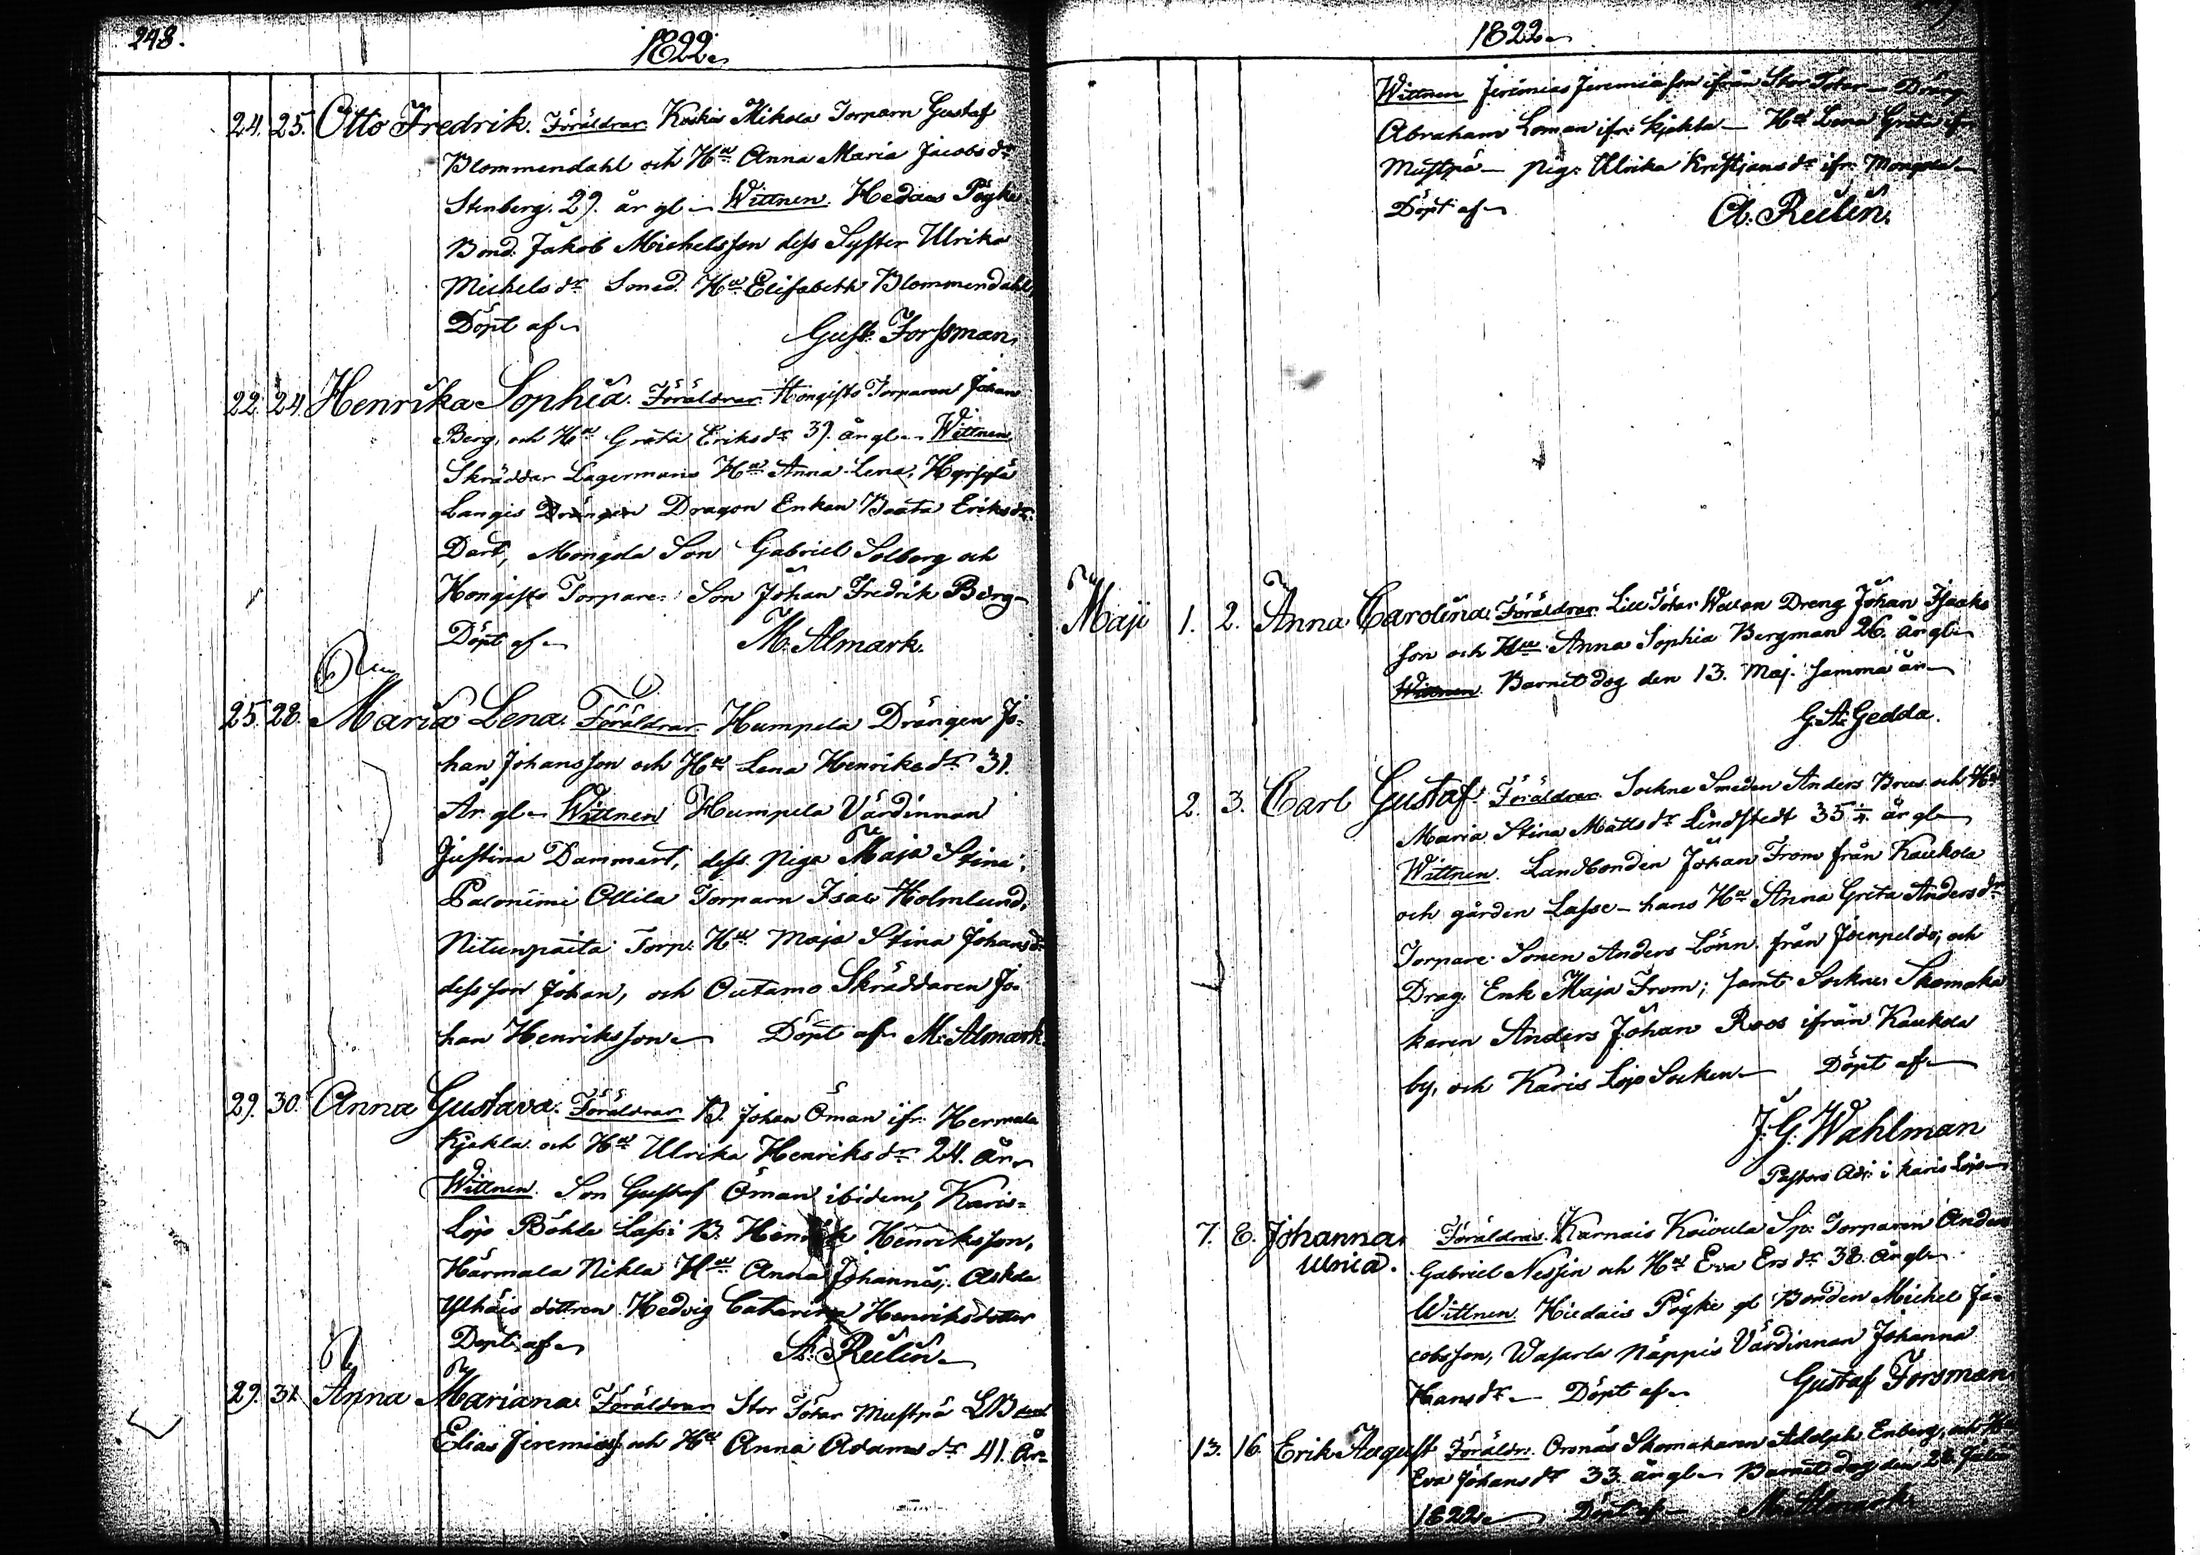 248.
1822.
24. 25. Otto Fredrik. Föräldrar Koskis Mikola Torparn Gustaf
Blommendahl och Hu Anna Maria Jacobs dr
Stenberg. 29. år gl Wittnen. Hedaes Pöyke
Bond. Jakob Michelsson dess Syster Ulrika
Michels dr Smed. Hu Elisabeth Blommendahl
Döpt af Gust. Forssman.
22. 24. Henrika Sophia. Föräldrar Hongisto Torparen Johan
Berg, och Hu Greta Eriks dr 39. år gl Wittnen
Skräddar Lagermans Hu Anna Lena,
Langis Drängen Dragon Enkan Beata Eriks dr
Dart, Mongola Son Gabriel Solberg och
Hongisto Torpare Son Johan Fredrik Berg
Döpt af M. Almark.
25. 28. Maria Lena. Föräldrar Humpela Drängen Jo-
han Johansson och Hu Lena Henriks dr 31.
År gl Wittnen Humpela Värdinnan
Justina Dammert, dess Piga Maja Stina;
Palonimi Ollila Torparn Isac Holmlund,
Nitunpaita Torp. Hu Maja Stina Johans dr
dess son Johan, och Outamo Skräddaren Jo-
han Henriksson Döpt af M. Almark
29. 30. Anna Gustava. Föräldrar B. Johan Öman ifr. Hermala
Kjekla och Hu Ulrika Henriks dr 24. År
Wittnen. Son Gustaf Öman ibidem, Karis-
Lojo Böhle Lassi B. Henrik Henriksson,
Härmala Nikla Hu Anna Johannes;
dottren Hedvig Catharina Henriksdotter
Döpt af A. Relin
29. 31. Anna Mariana. Föräldrar Stor Tötar Mustpä LB
Elias Jeremiass och Hu Anna Adams dr 41. År
1822
Wittnen Jeremias Jeremiasson ifrån Stor Tötar Dräng
Abraham Loman ifr. Kjekla Hu Lena Greta ifr
Mustpä Pig. Ulrika Kristjans dr ifr. Mongola
Döpt af A. Relin.
Maji 1. 2. Anna Carolina. Föräldrar Lill Tötar Dreng Johan Isaks
son och Hu Anna Sophia Bergman 26. år gl
Wittnen Barnet dog den 13. Maj. samma år
G. A. Gedda.
2. 3. Carl Gustaf. Föräldrar Sockne Smeden Anders Brus och Hu
Maria Stina Matts dr Lindstedt 35 1/4. år gl
Wittnen. Landbonden Johan From från Kaukola
och gården Lasse hans Hu Anna Greta Anders dr
Torpare Sonen Anders Lönn från Joenpeldo; och
Drag. Enk Maja From; samt Sockne Skomaka
karen Anders Johan Roos ifrån Kaukola
by, och Karis Lojo Socken Döpt af
J. G. Wahlman
Pastors Adj. i Karis Lojo
7. 8. Johanna Föräldrar. Karnais Koivula Sp. Torparen Anders
Ulrica. Gabriel Nessin och Hu Eva Ers dr 38. år gl
Wittnen Hiedais Pöyke gl Bonden Michel Ja-
cobsson, Wasarla Näppis Värdinnan Johanna
Hans dr Döpt af Gustaf Forsman.
13. 16. Erik August Föräldr. Ornäs Skomakaren Adolph Enberg, och Hu
Eva Johans dr 33. år gl Barnet dog den 28. Julii
1822 Döpt af M. Almark.